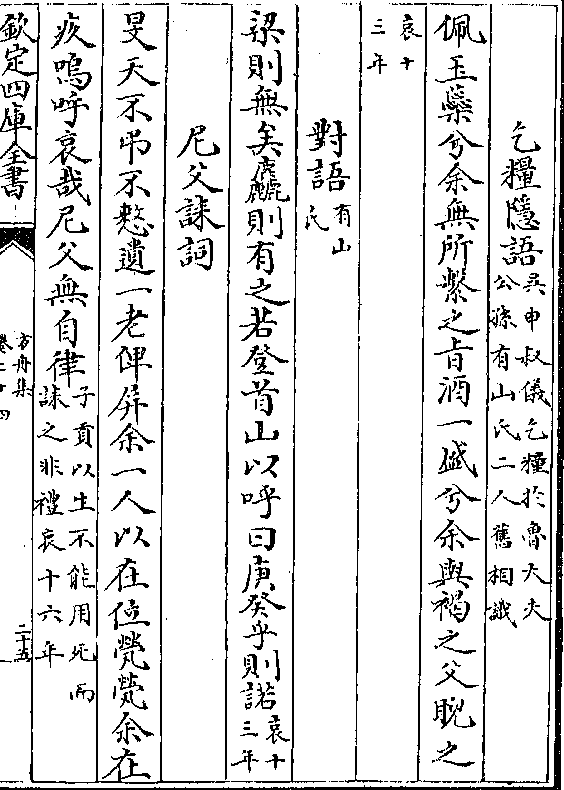 乞糧隱語吳申叔儀乞糧於魯大夫公孫有山氏二人舊相識
佩玉蘂兮余無所繫之旨酒一盛兮余與褐之父睨之
哀十三年
對語有山氏
梁則無矣麤則有之若登首山以呼曰庚癸乎則諾哀十三年
尼父誄詞
旻天不弔不憖遺一老俾屏余一人以在位煢煢余在
疚嗚呼哀哉尼父無自律子貢以生不能用死而誄之非禮哀十六年
欽定四庫全書
方舟集
卷二十四
二十五